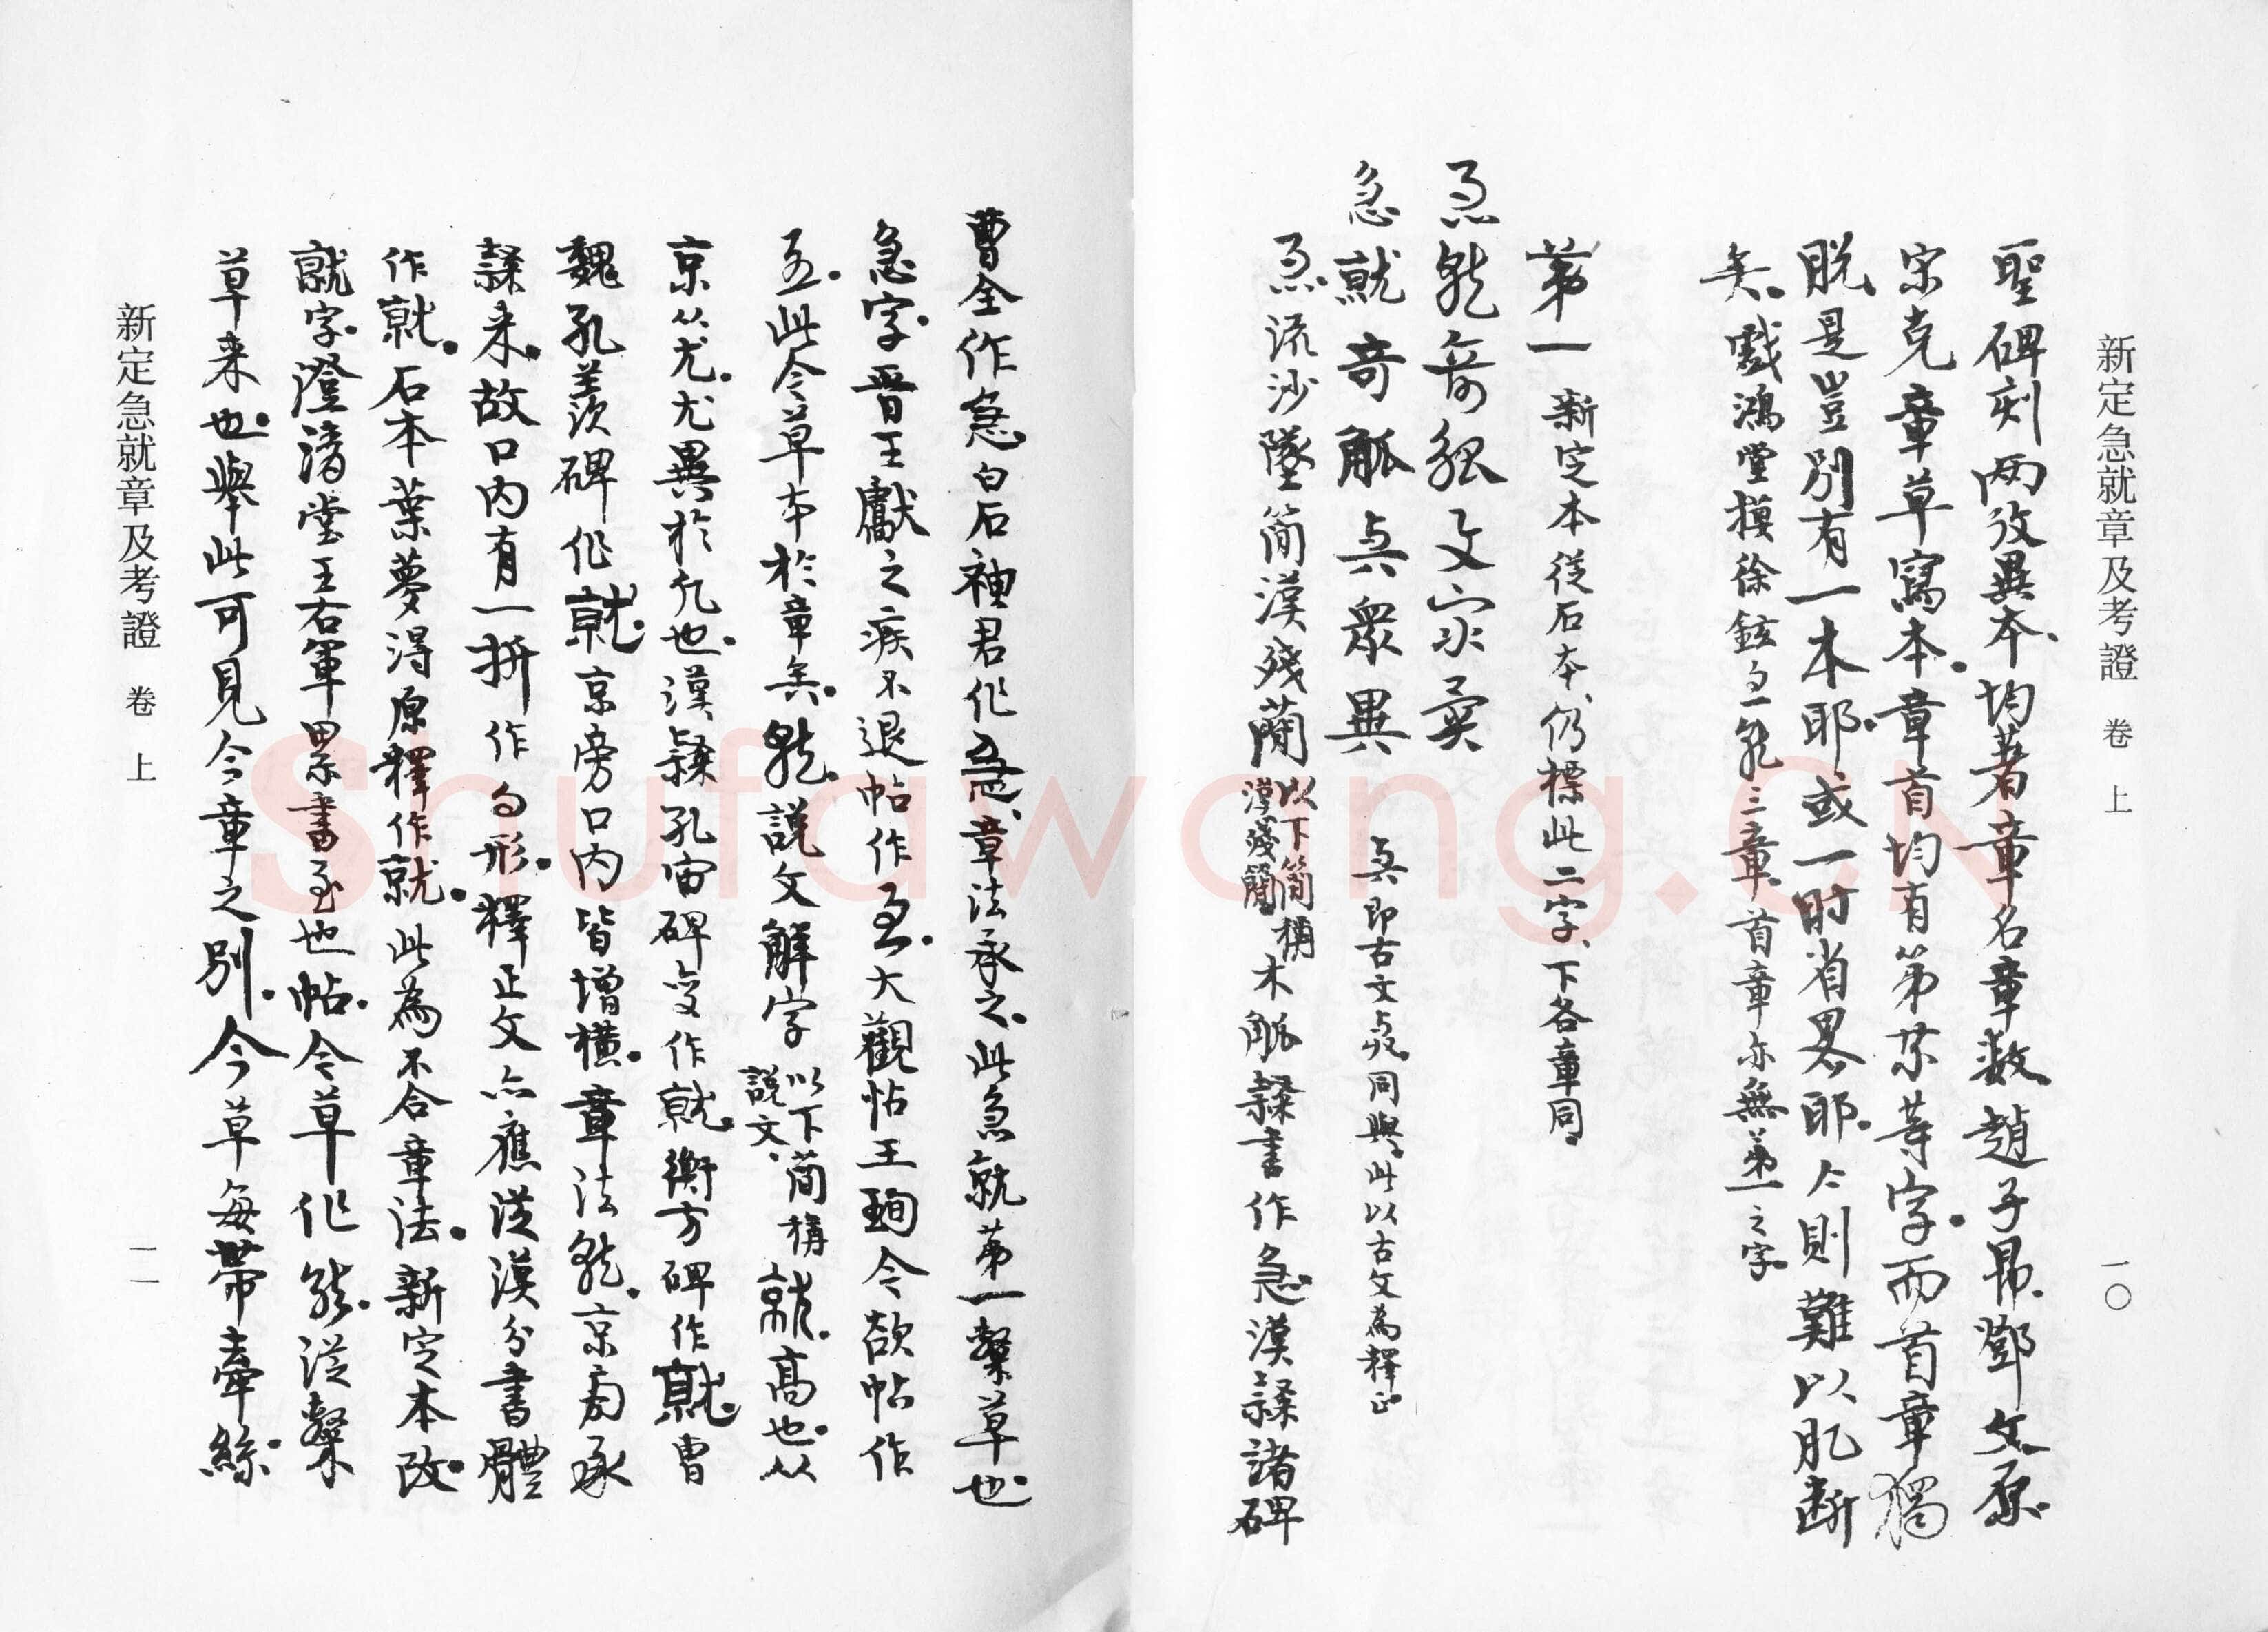 新定急就章及考證 卷上 一〇
聖碑刻兩攷異本、均著章名章數。趙子昂、鄧文原、
宋克章草寫本。章首均有第某等字。而首章獨
脫。是豈別有一本耶。或一時省畧耶。今則難以肊斷
矣。戲鴻堂摸徐鉉急就三章、首章亦無第一之字。
第一 新定本從石本、仍標此二字、下各章同。
急就奇觚與衆異
急就奇觚與衆異 与即古文𢌱。同與。此以古文為釋正。
急。流沙墜簡漢殘蕑以下簡稱漢殘簡木觚隸書作急。漢隸諸碑
曹全作急。白石神君作急、章法承之。此急就第一檃草也。
急字。晋王獻之疾不退帖作急。大觀帖王珣今欲帖作
急。此今草本於章矣。就。說文解字以下簡稱說文、就。高也。从
京从尤。尤異於凡也。漢隸孔宙碑變作就。衡方碑作就。曹
魏孔羨碑作就。京旁口內皆增橫。章法就。京旁承
隸来。故口內有一拼作勾形。釋正文亦應從漢分書體
作就。石本葉夢得原釋作就。此為不合章法。新定本改。
就字。澄清堂王右軍累書至也帖。今草作就。從檃
草来也。舉此可見今章之別。今草每帶牽絲。
新定急就章及考證 卷上 一一
Shufawang.CN